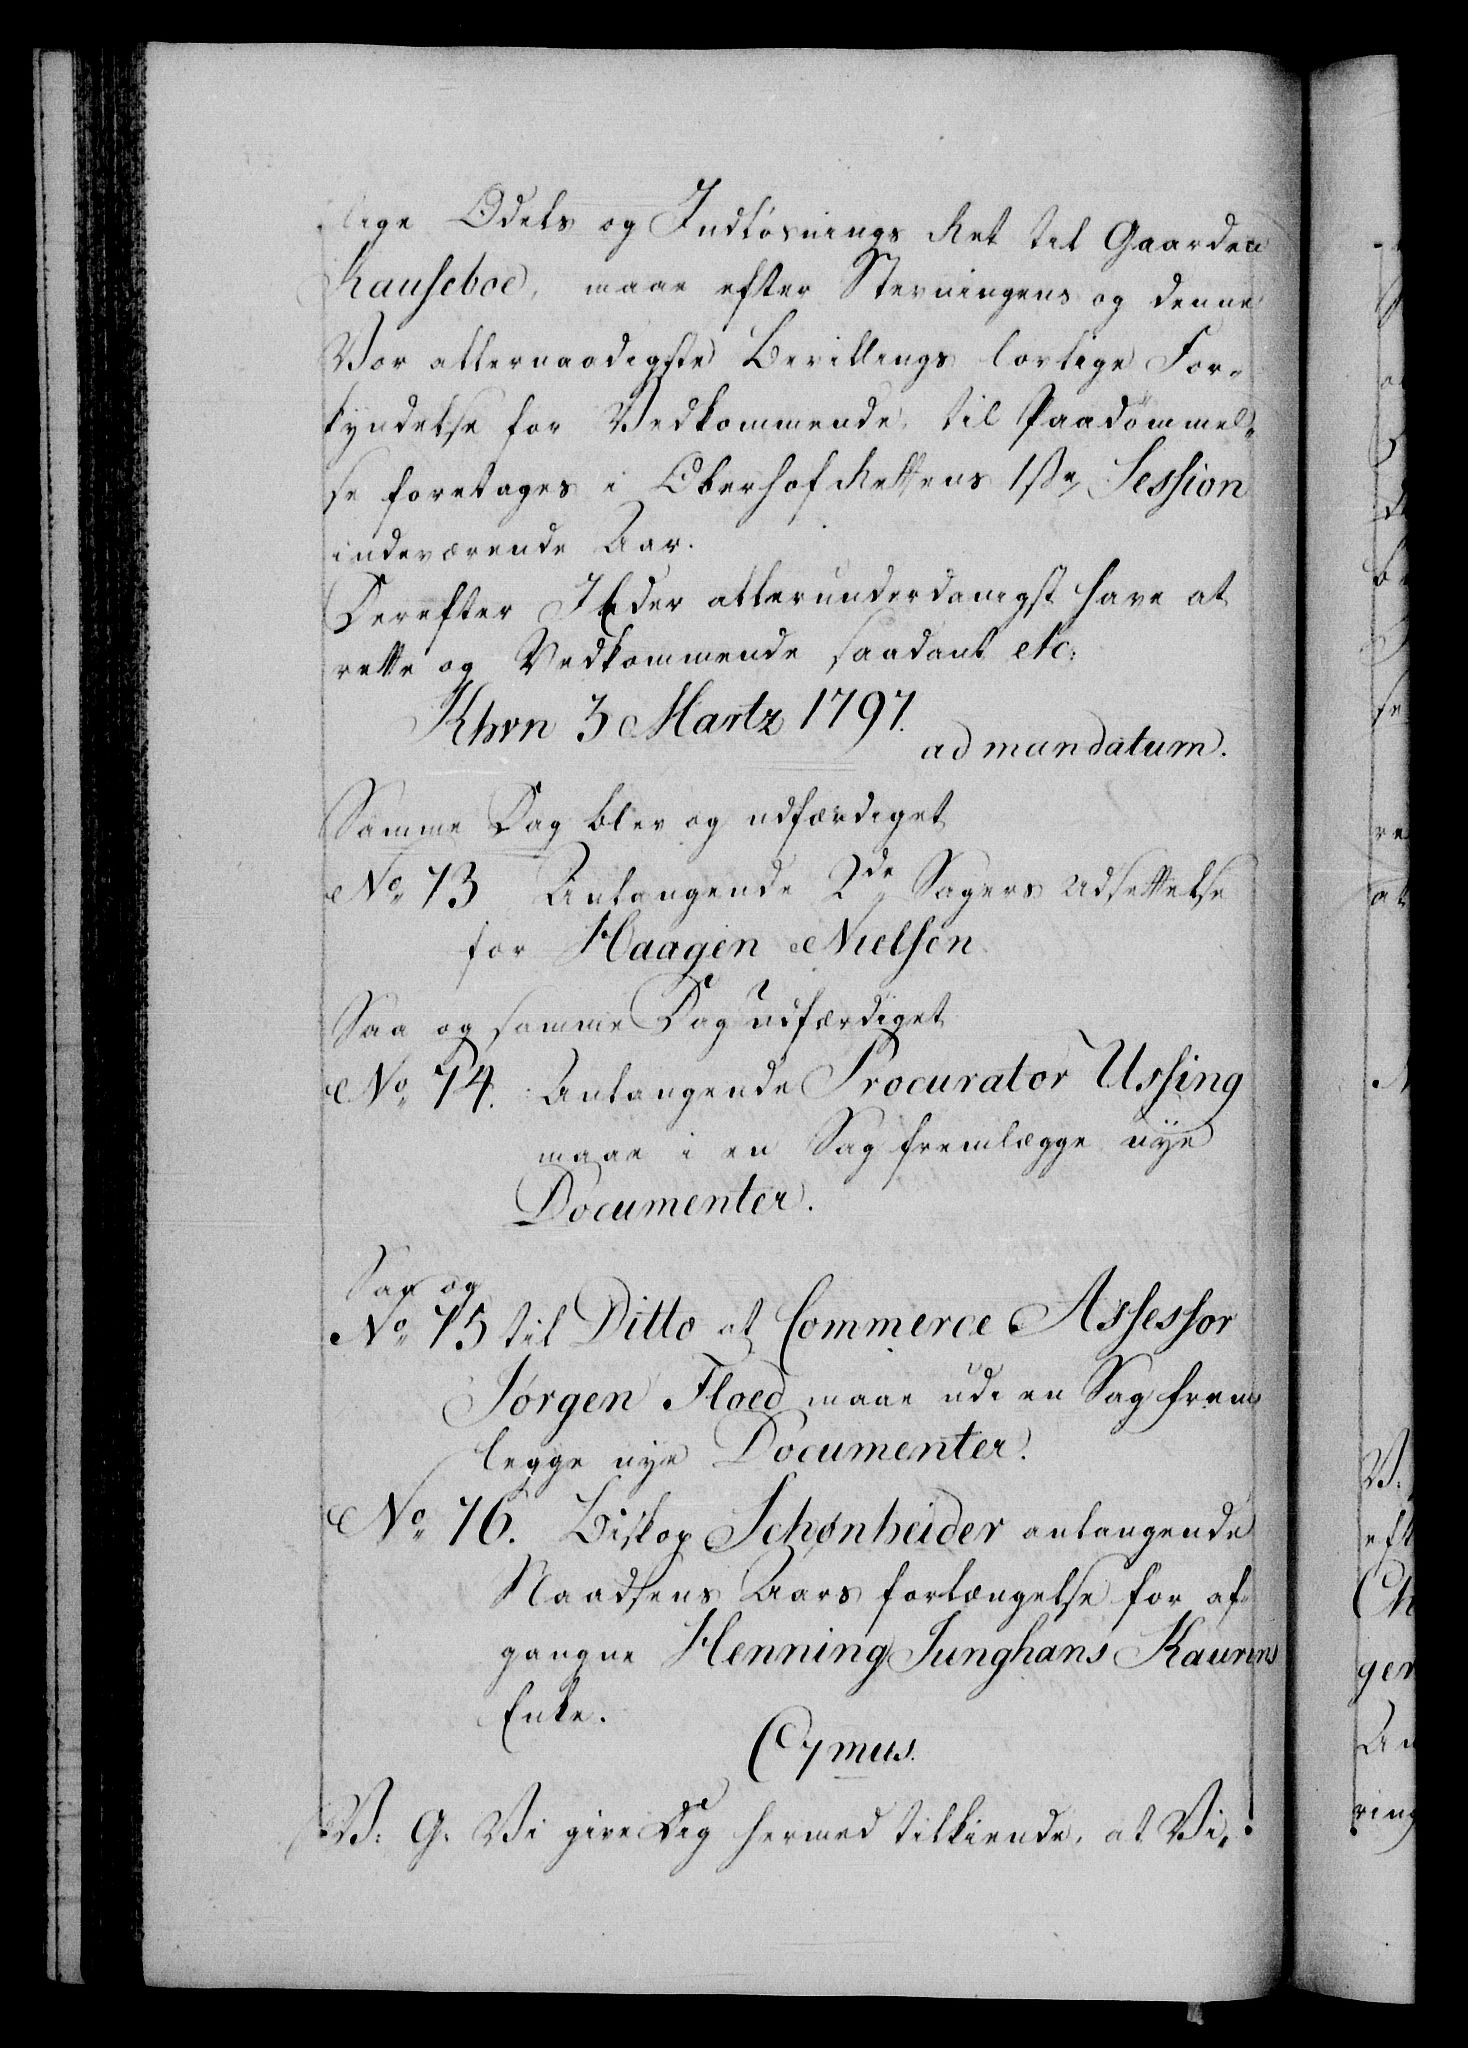 lige Odels og Indløsnings Ret til Gaarden
Rauseboe, maae efter Stevningens og denne
Vor allernaadigste Bevillings lovlige For-
kyndelse for Vedkommende, til Paadømmel-
se foretages i OberhofRettens 1ste Session
indeværende Aar.
Derefter I Eder allerunderdanigst have at
rette og Vedkommende saadant etc:
Khvn 3 Martz 1797.
ad mandatum.
Samme Dag blev og udfærdiget
No 73 Anlangende 2de Sagers Udsettelse
for Haagen Nielsen
Saa og samme Dag udfærdiget
No 74. Anlangende Procurator Ussing
maae i en Sag fremlægge nye
Documenter.
Saa og
No 75 til Ditto at Commerce Assessor
Jørgen Floed maae udi en Sag frem
legge nye Documenter.
No 76. Biskop Schønheider anlangende
Naadsens Aars forlængelse for af-
gangne Henning Junghans Kaurins
Enke.
C 7mus.
V: G: Vi give Dig hermed tilkiende, at Vi,